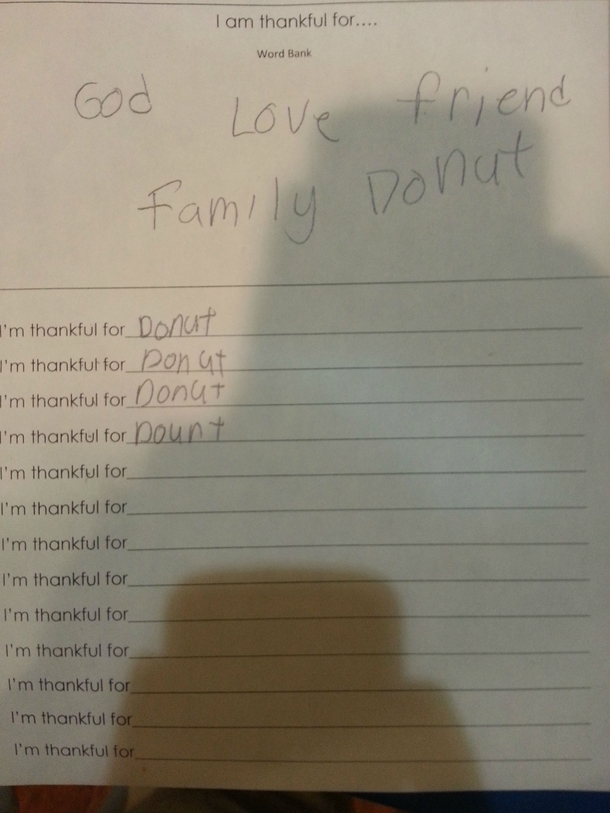 I am thankful for....
Word Bank
God Love friend
Family Donut
I'm thankful for Donut
I'm thankful for Donut
I'm thankful for Donut
I'm thankful for Dount
I'm thankful for
I'm thankful for
I'm thankful for
I'm thankful for
I'm thankful for
I'm thankful for
I'm thankful for
I'm thankful for
I'm thankful for